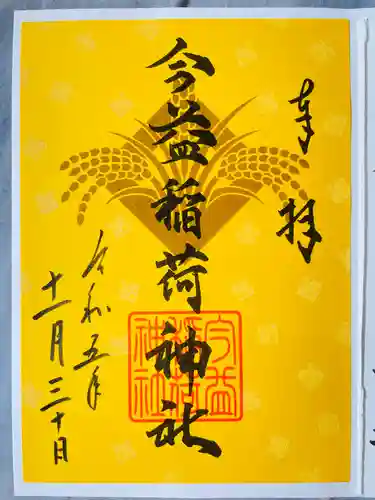 奉拝
今益稲荷神社
今益
稲荷
神社
令和五年
十一月三十日